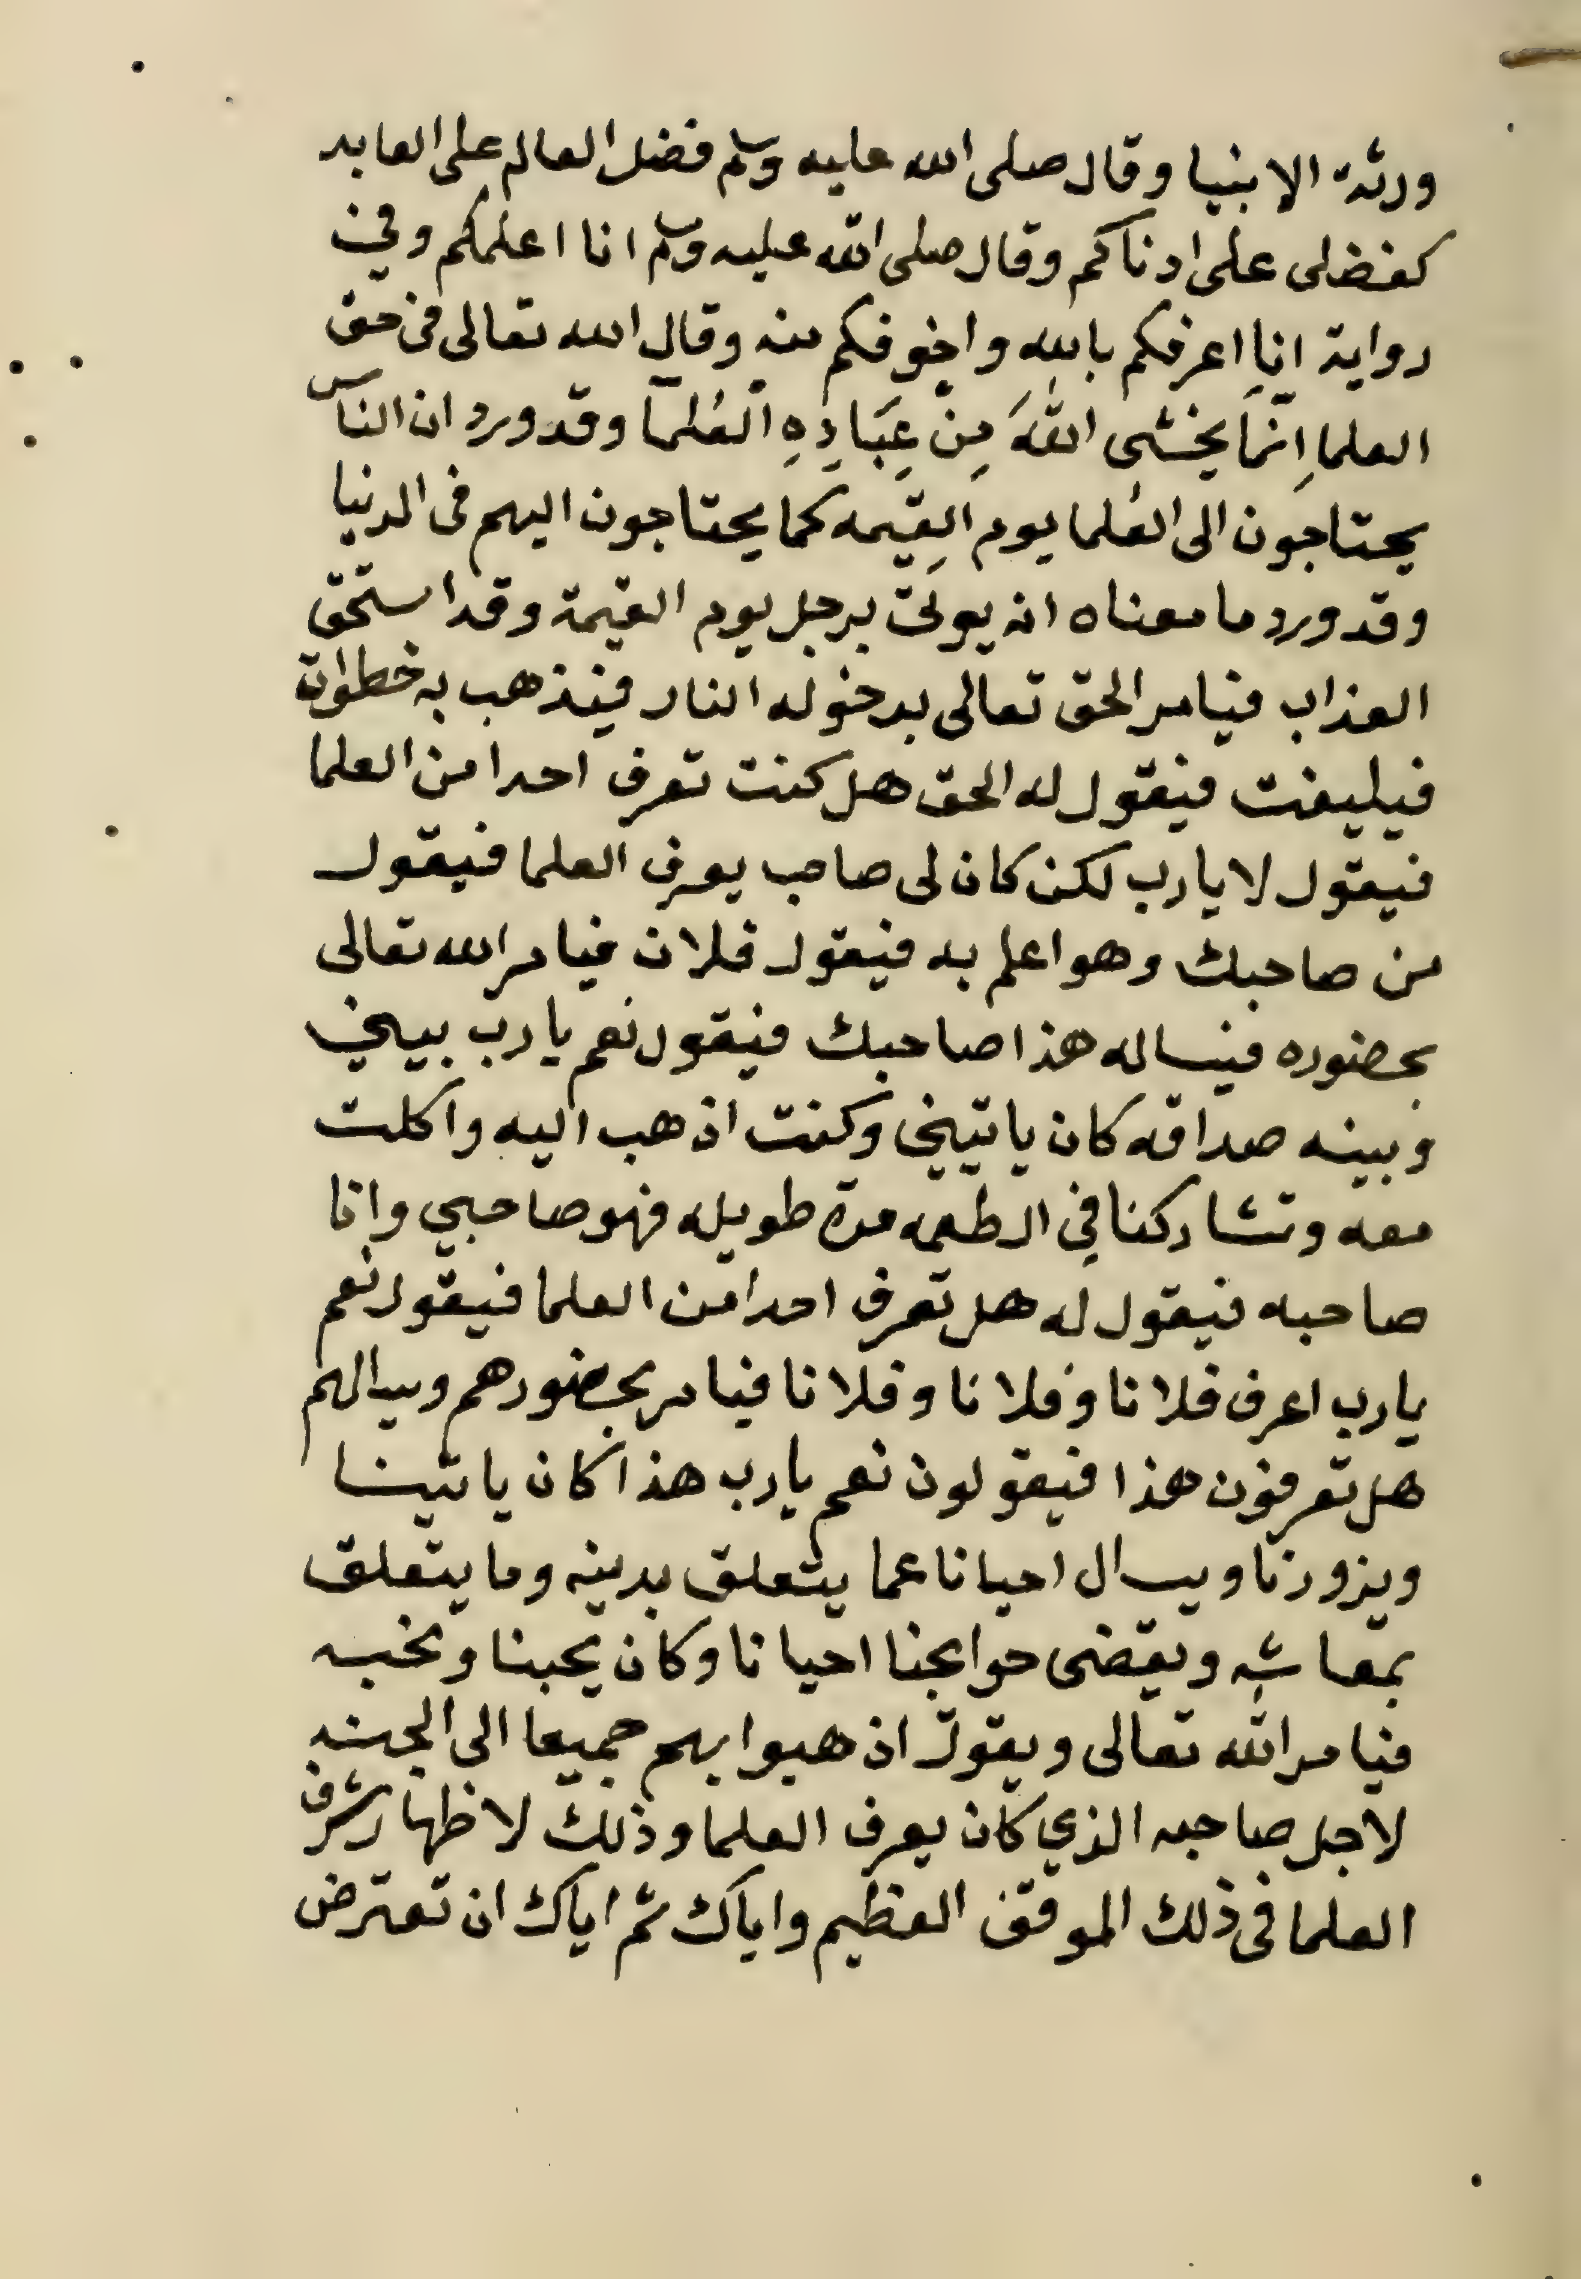 ورثة الانبيا وقال صلى الله عليه وسلم فضل العالم على العابد
كفضلى على ادناكم وقال صلى الله عليه وسلم انا اعلمكم وفي
رواية انا اعرفكم بالله واخوفكم منه وقال الله تعالى فى حق
العلما اِنّمَا يخشى اللهَ مِنْ عِبَادِهِ الْعُلمآ وقد ورد ان الناس
يحتاجون الى العُلما يوم القِيمه كما يحتاجون اليهم فى الدنيا
وقد ورد ما معناه انه يوتى برجل يوم القيمة وقد استحق
العذاب فيامر الحق تعالى بدخوله النار فيذهب به خطوات
فيليفت فيقول له الحق هل كنت تعرف احدا من العلما
فيقول لا يارب لكن كان لى صاحب يعرف العلما فيقول
من صاحبك وهو اعلم به فيقول فلان فيامر الله تعالى
بحضوره فيساله هذا صاحبك فيقول نعم يارب بيني
وبينه صداقه كان ياتيني وكنت اذهب اليه واكلت
معه وتشاركنا في الطعمه مدة طويله فهو صاحبي وانا
صاحبه فيقول له هل تعرف احدا من العلما فيقول نعم
يارب اعرف فلانا وفلانا وفلانا فيامر بحضورهم ويسالهم
هل تعرفون هذا فيقولون نعم يارب هذا كان ياتينا
ويزورنا ويسال احيانا عما يتعلق بدينه وما يتعلق
بمعاشه ويقضى حوايجنا احيانا وكان يحبنا ونحبه
فيامر الله تعالى ويقول اذهبوا بهم جميعا الى الجنه
لاجل صاحبه الذي كان يعرف العلما وذلك لاظهار شرف
العلما فى ذلك الموقف العظيم واياك ثم اياك ان تعترض